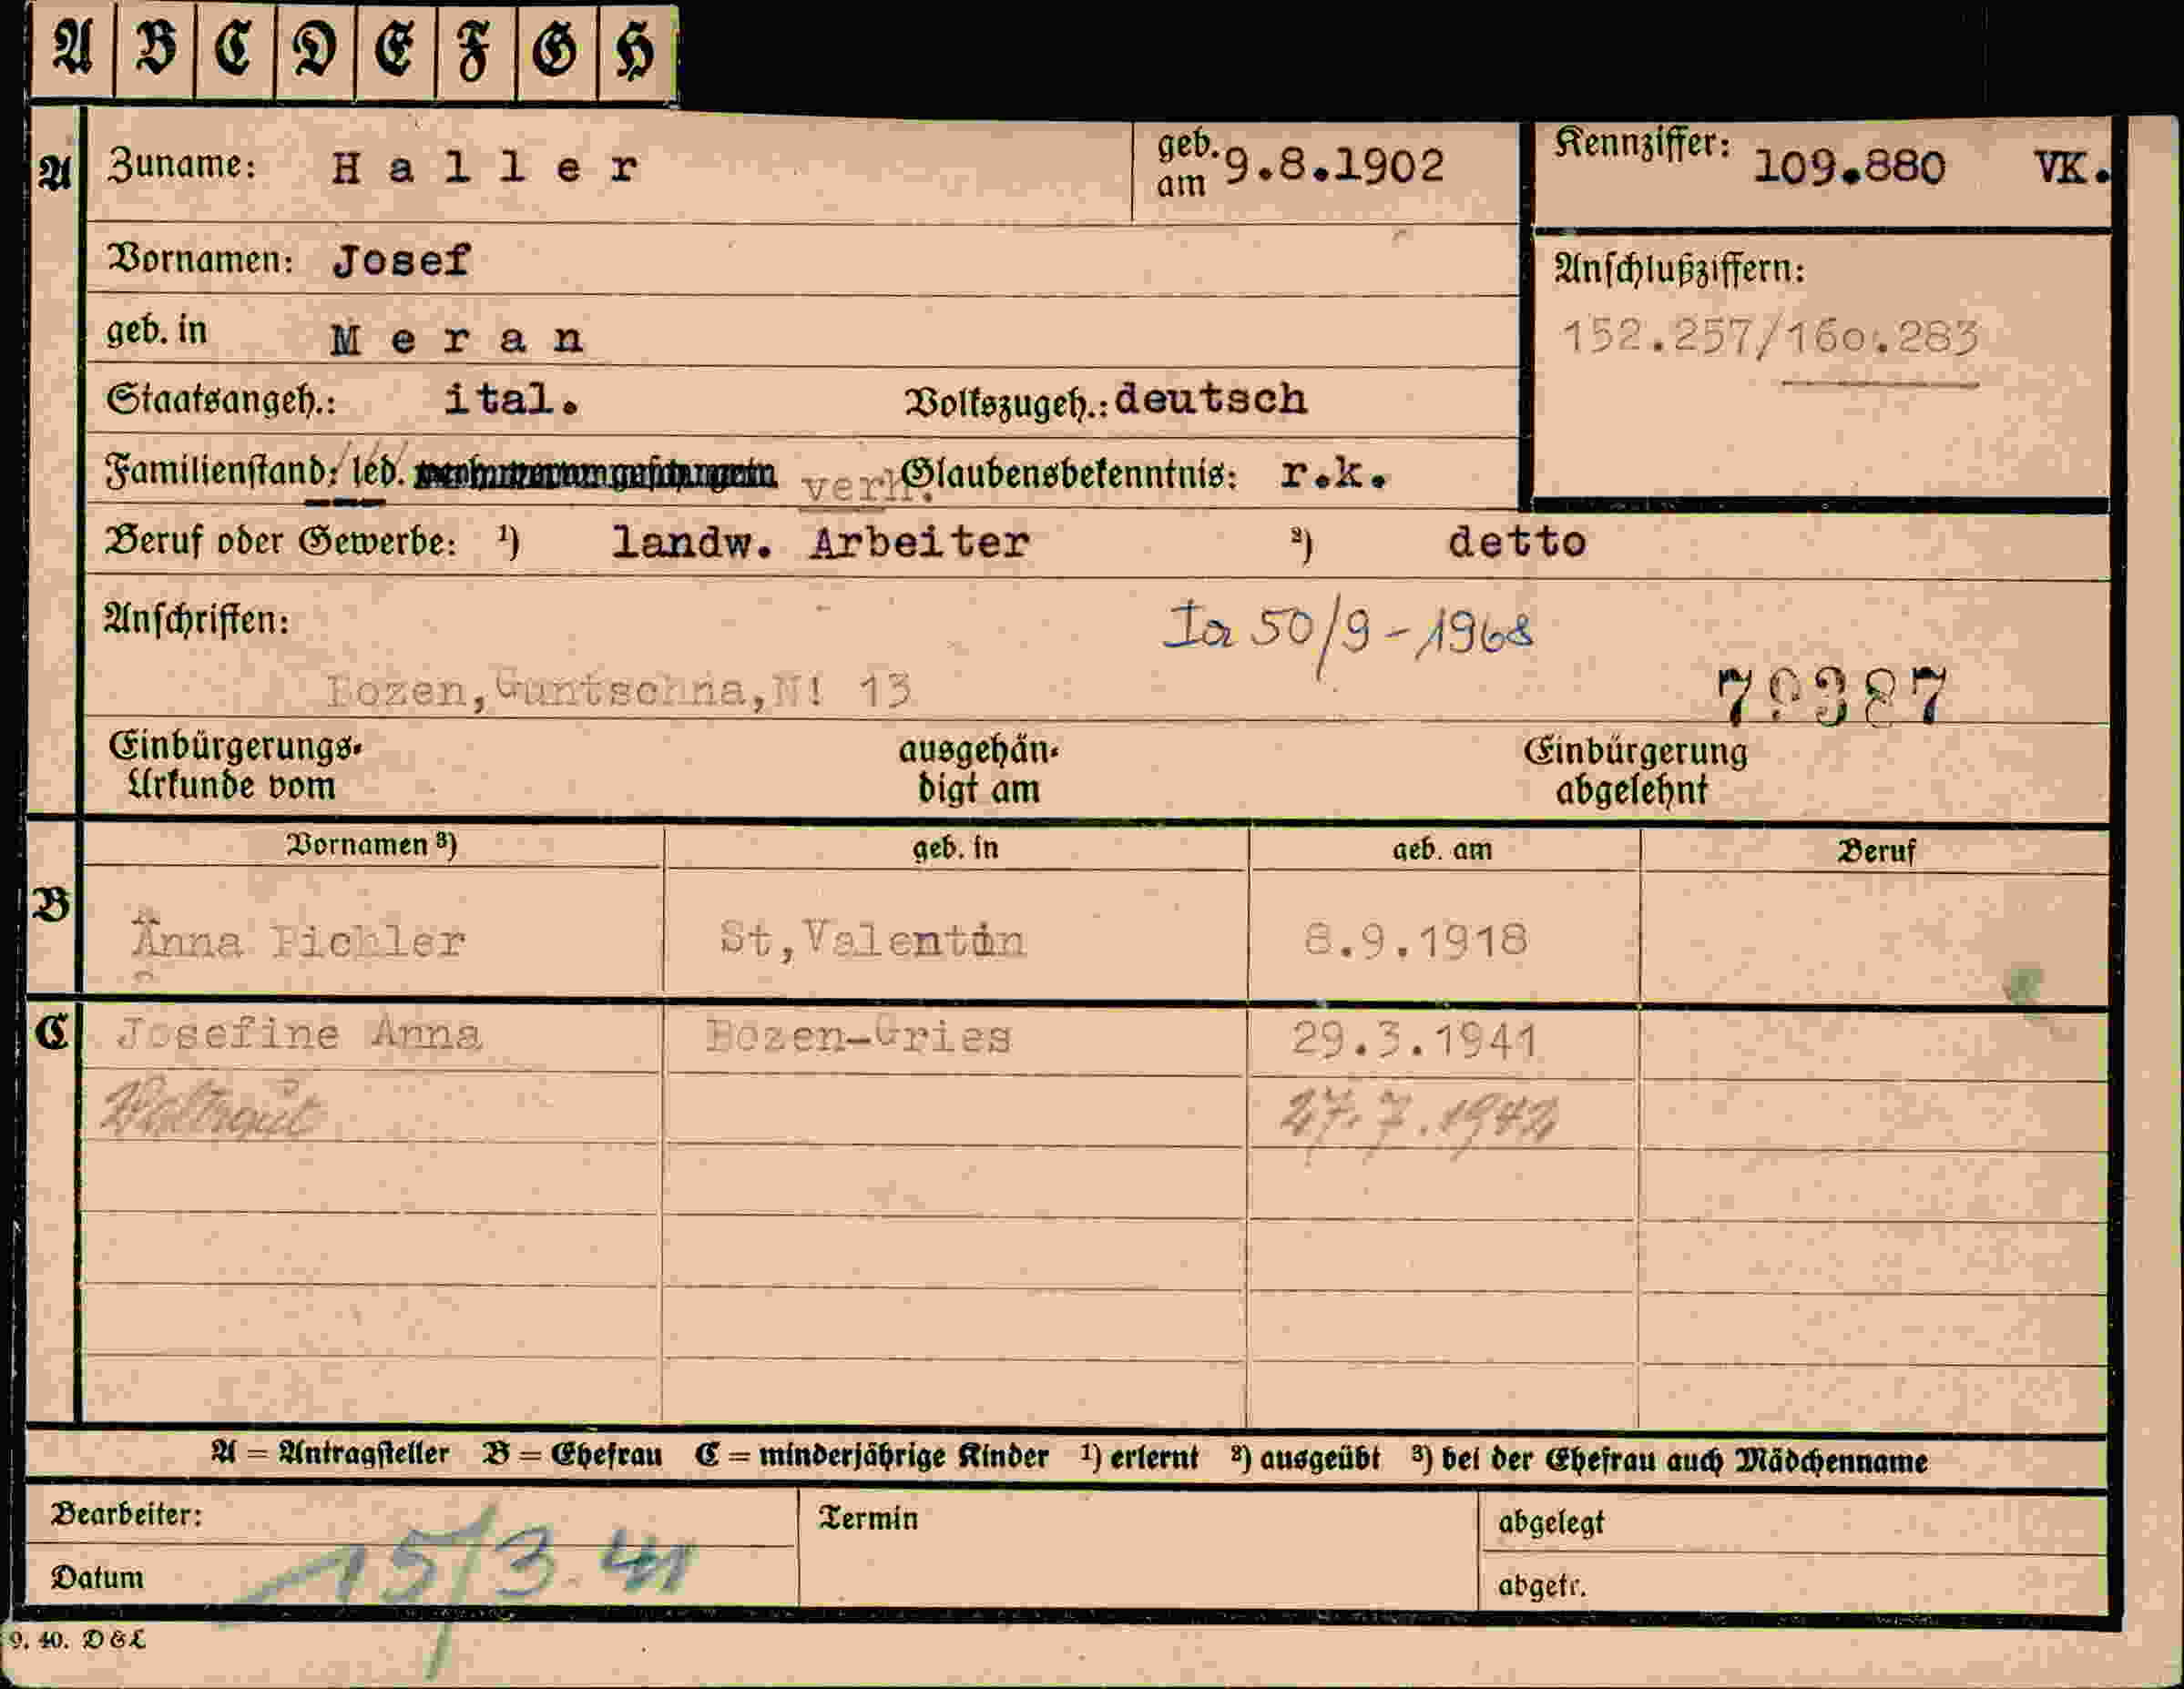 A B C D E F G H
A Zuname: Haller geb. am 9.8.1902 Kennziffer: 109.880 VK.
Vornamen: Josef Anschlußziffern:
geb. in Meran 152.257/160.283
Staatsangeh.: ital. Volkszugeh.: deutsch
Familienstand: led. verh. Glaubensbekenntnis: r.k.
Beruf oder Gewerbe: ¹) landw. Arbeiter ²) detto
Anschriften: Ia 50/9-1968
Bozen,Guntschna,N! 13 79387
Einbürgerungs- ausgehän- Einbürgerung
Urkunde vom digt am abgelehnt
Vornamen ³) geb. in geb. am Beruf
B Anna Pichler St,Valentin 8.9.1918
C Josefine Anna Bozen-Gries 29.3.1941
Waltraut 27.7.1942
A = Antragsteller B = Ehefrau C = minderjährige Kinder ¹) erlernt ²) ausgeübt ³) bei der Ehefrau auch Mädchenname
Bearbeiter: Termin abgelegt
Datum 15/3.41 abgetr.
9. 40. D & L